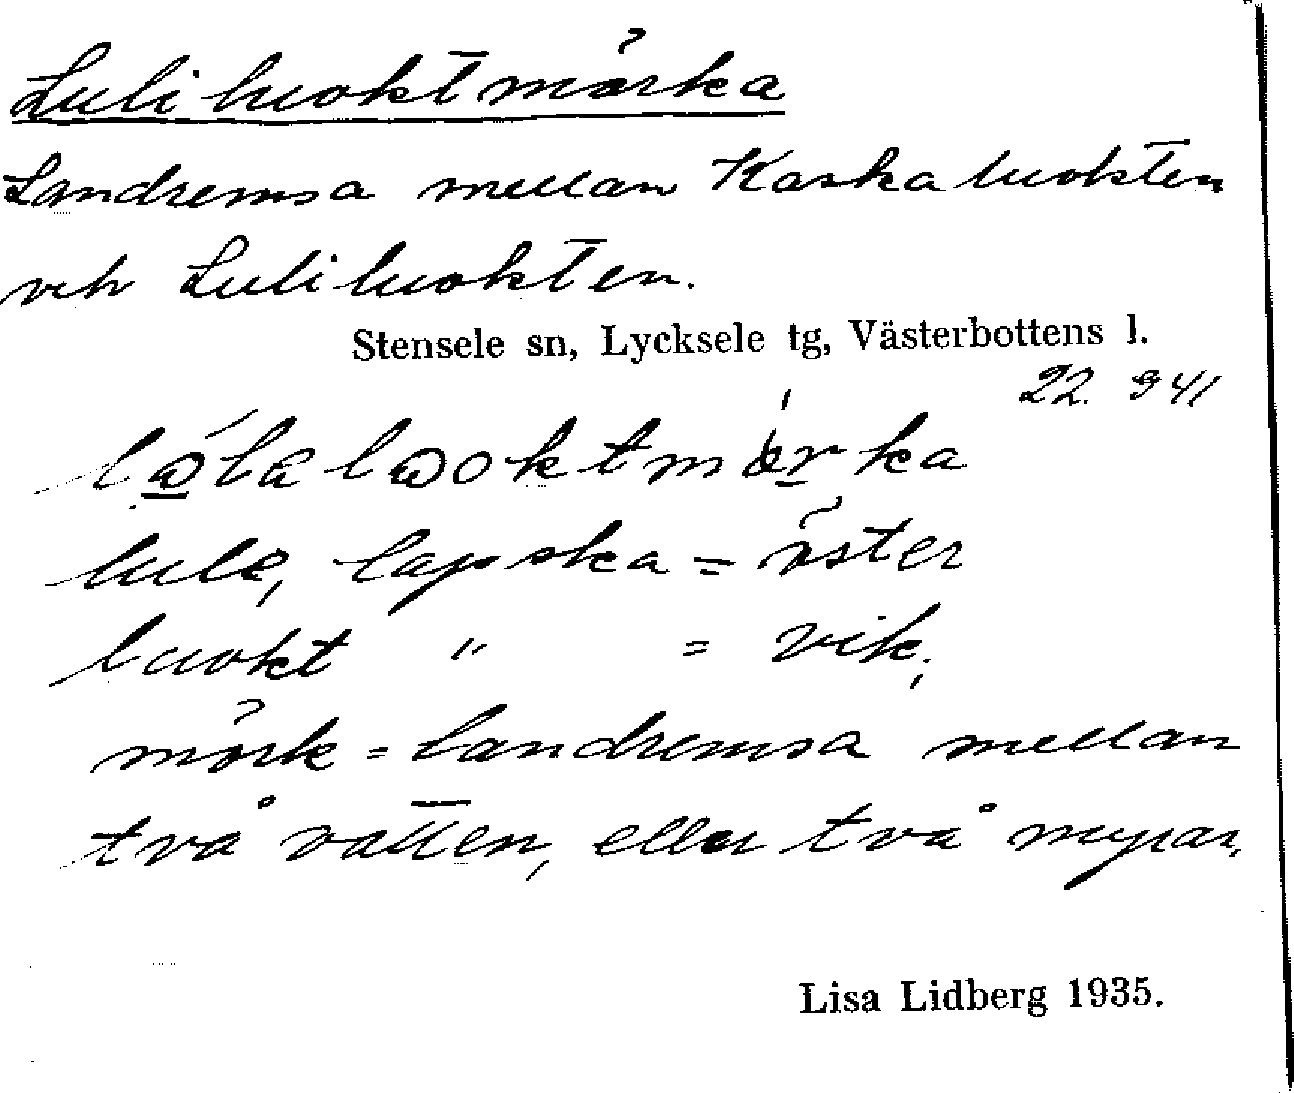 Luliluoktmörka
Landremsa mellan Kaskaluokten
och Luliluokten.
Stensele sn, Lycksele tg, Västerbottens l.
22. 941
lule, lapska = öster
luokt " = vik,
mörk = landremsa mellan
två vatten, eller två myrar,
Lisa Lidberg 1935.